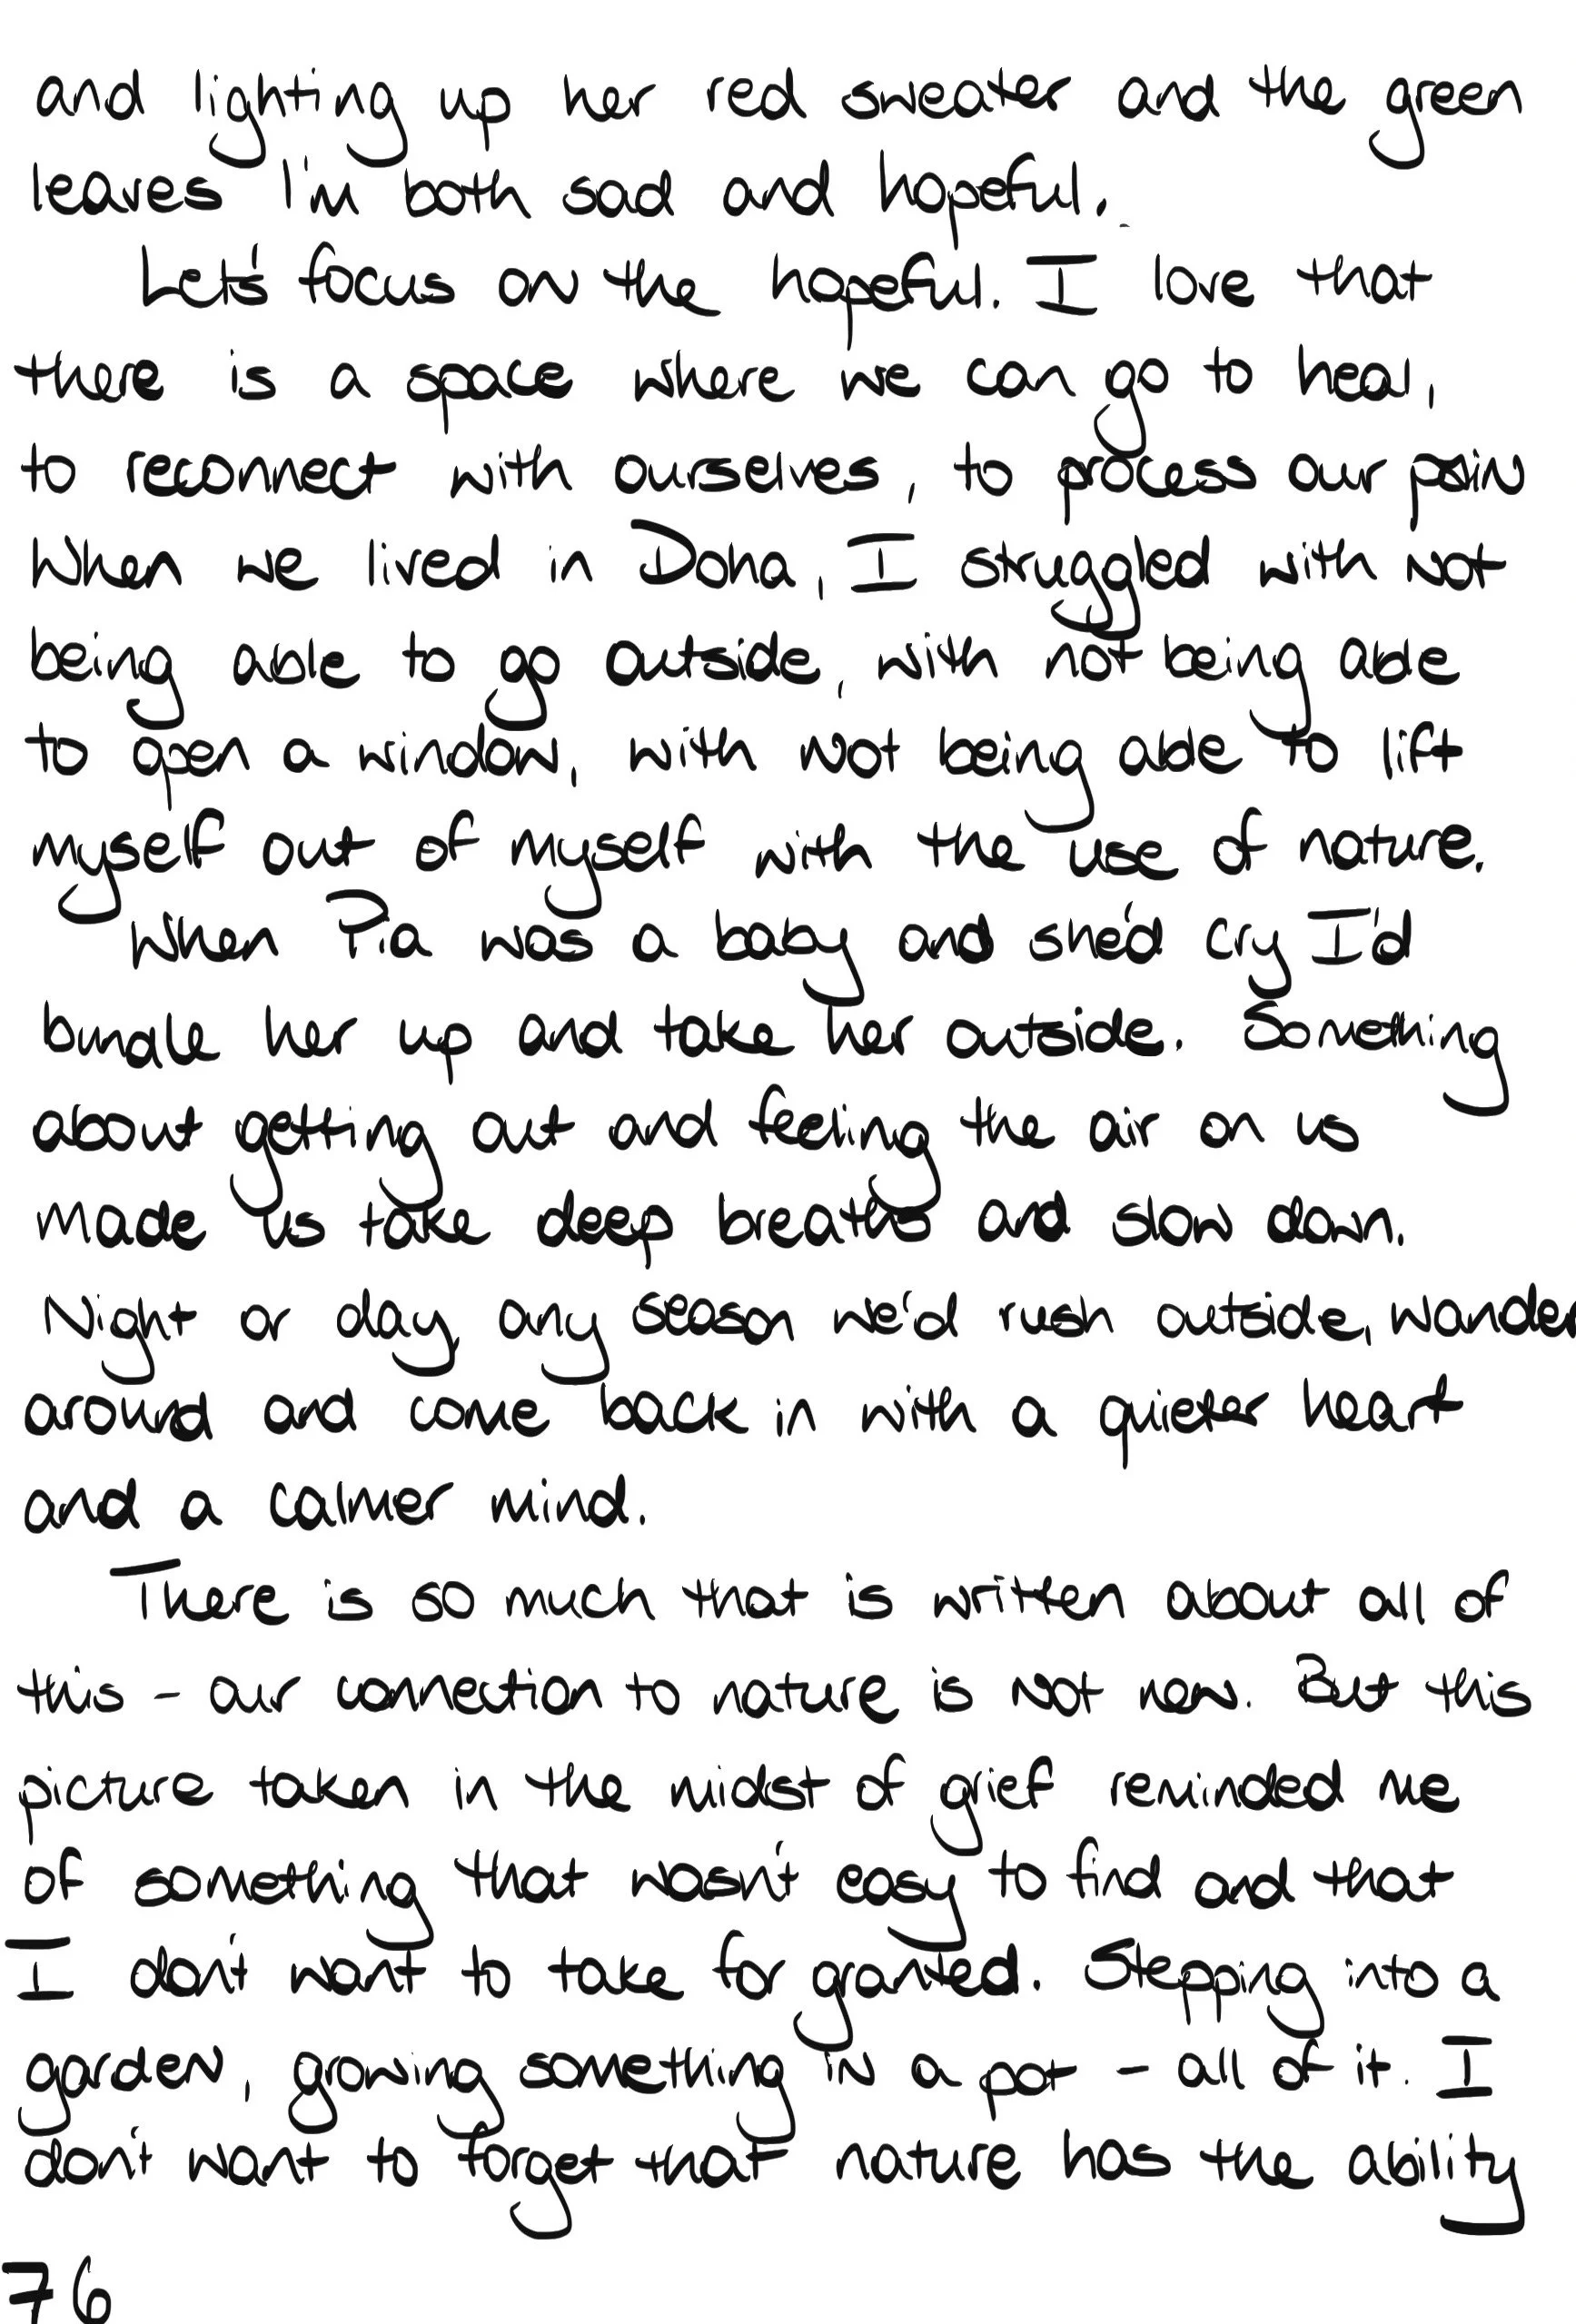 and lighting up her red sweater and the green
leaves I'm both sad and hopeful.
Let's focus on the hopeful. I love that
there is a space where we can go to heal,
to reconnect with ourselves, to process our pain
When we lived in Doha, I struggled with not
being able to go outside, with not being able
to open a window, with not being able to lift
myself out of myself with the use of nature.
When Pia was a baby and she'd cry I'd
bundle her up and take her outside. Something
about getting out and feeling the air on us
made us take deep breaths and slow down.
Night or day, any season we'd rush outside, wander
around and come back in with a quieter heart
and a calmer mind.
There is so much that is written about all of
this - our connection to nature is not new. But this
picture taken in the midst of grief reminded me
of something that wasn't easy to find and that
I don't want to take for granted. Stepping into a
garden, growing something in a pot - all of it. I
don't want to forget that nature has the ability
76